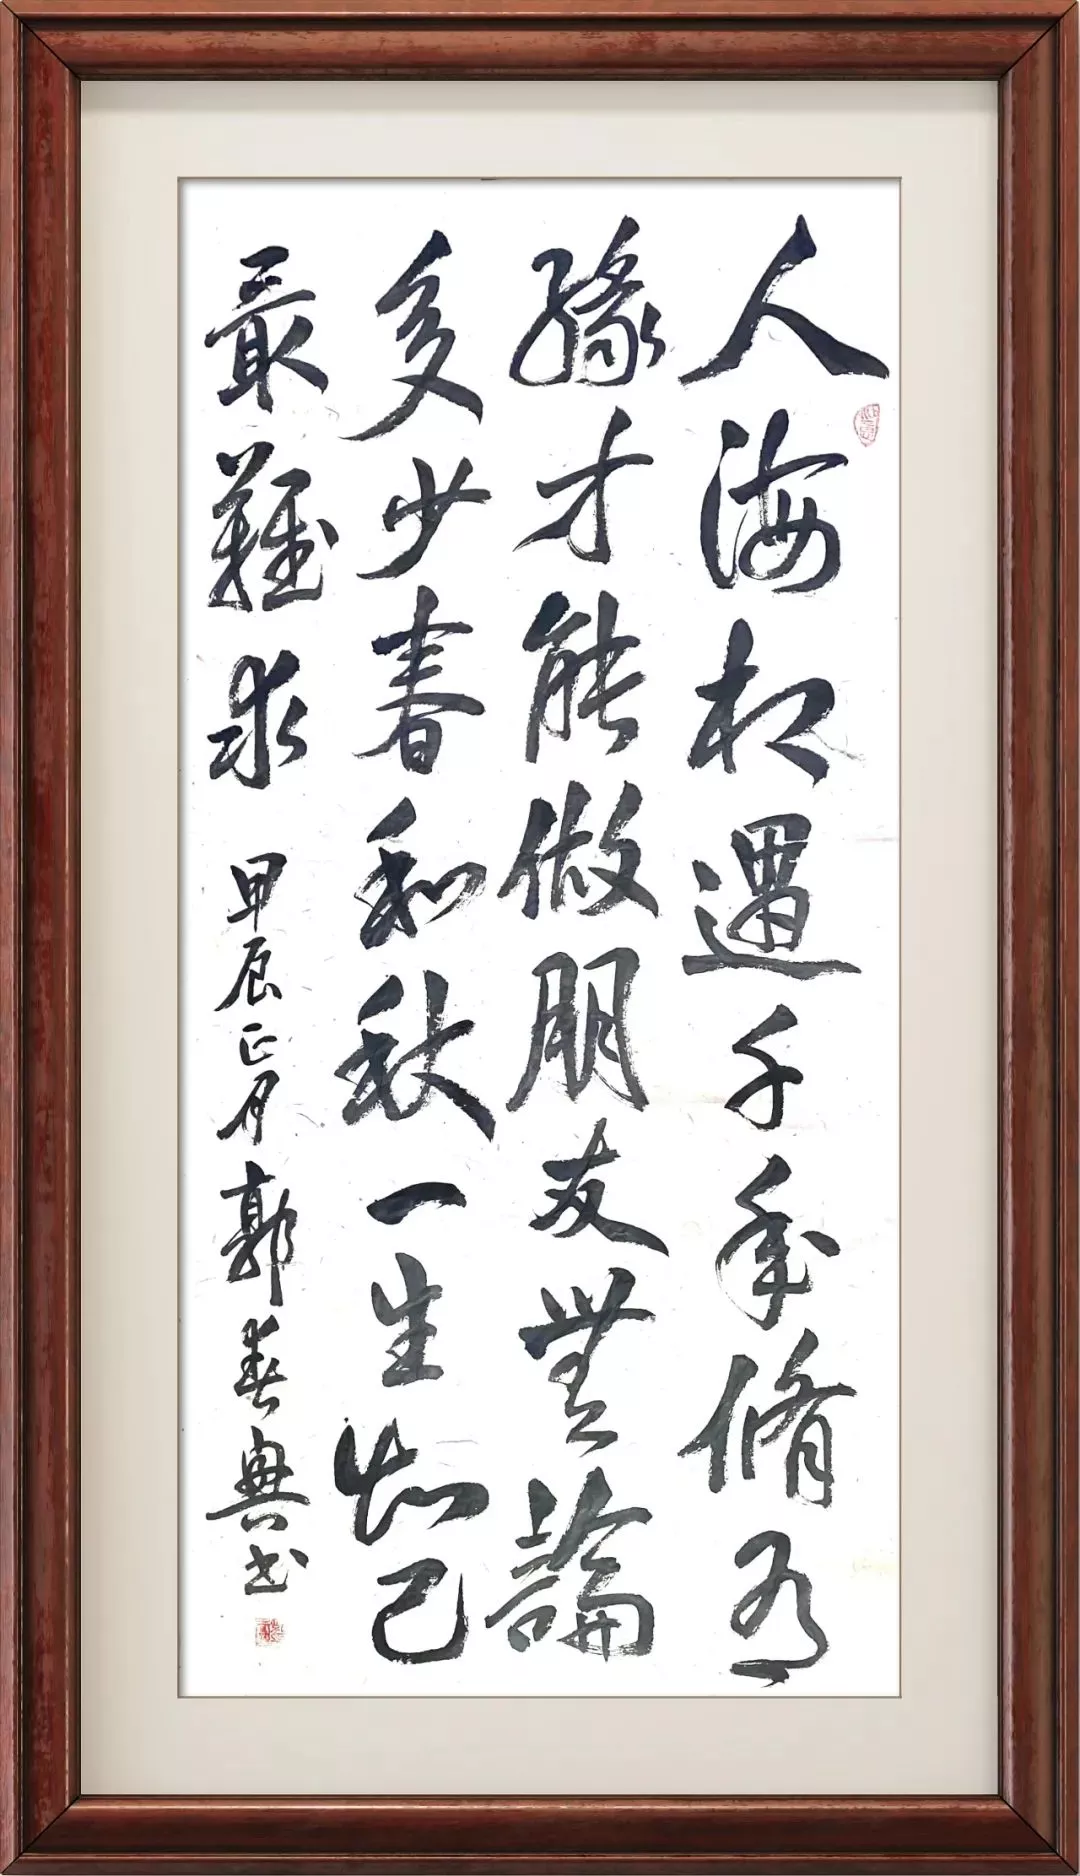 人海相遇千年脩有
緣才能做朋友無論
多少春和秋一生知己
最難求
甲辰正月郭春典书